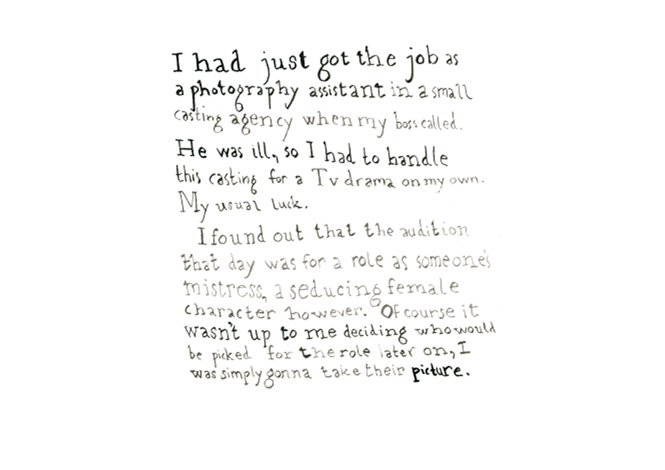 I had just got the job as
a photography assistant in a small
casting agency when my boss called.
He was ill, so I had to handle
this casting for a Tv drama on my own.
My usual luck.
I found out that the audition
that day was for a role as someone's
mistress, a seducing female
character however. Of course it
wasn't up to me deciding who would
be picked for the role later on, I
was simply gonna take their picture.